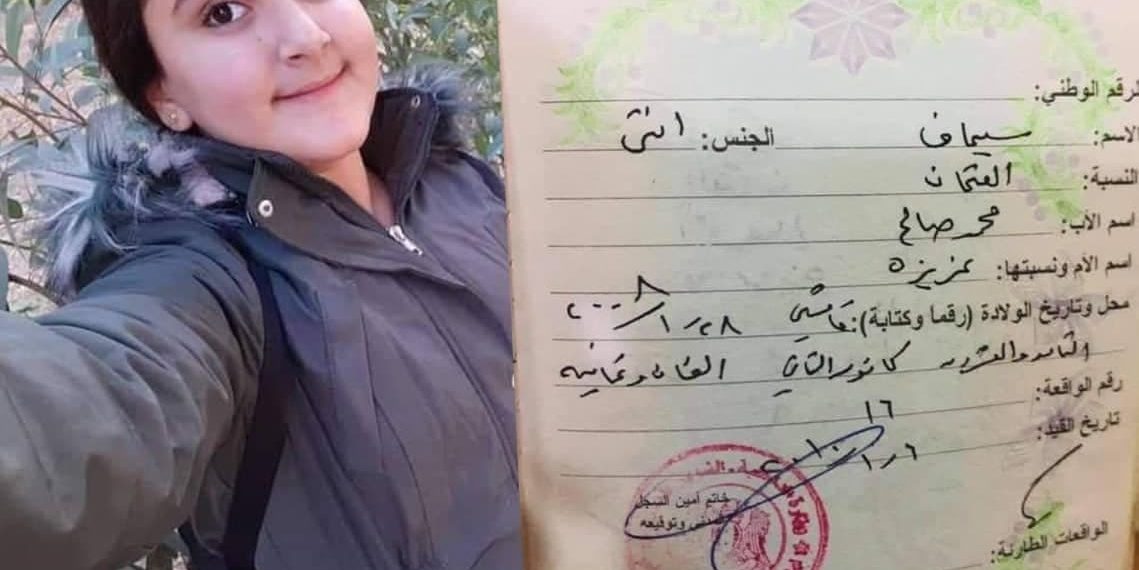 الرقم الوطني:
الاسم: سيماف الجنس: انثى
النسبة: العثمان
اسم الأب: محمد صالح
اسم الأم ونسبتها: عزيزه
محل وتاريخ الولادة (رقما وكتابة): قامشلي ٢٨/١/٢٠٠٨
الثامن والعشرين كانون الثاني الفان وثمانيه
رقم الواقعة: ١٦
تاريخ القيد:
خاتم أمين السجل
المدني وتوقيعه
الواقعات الطارئة: